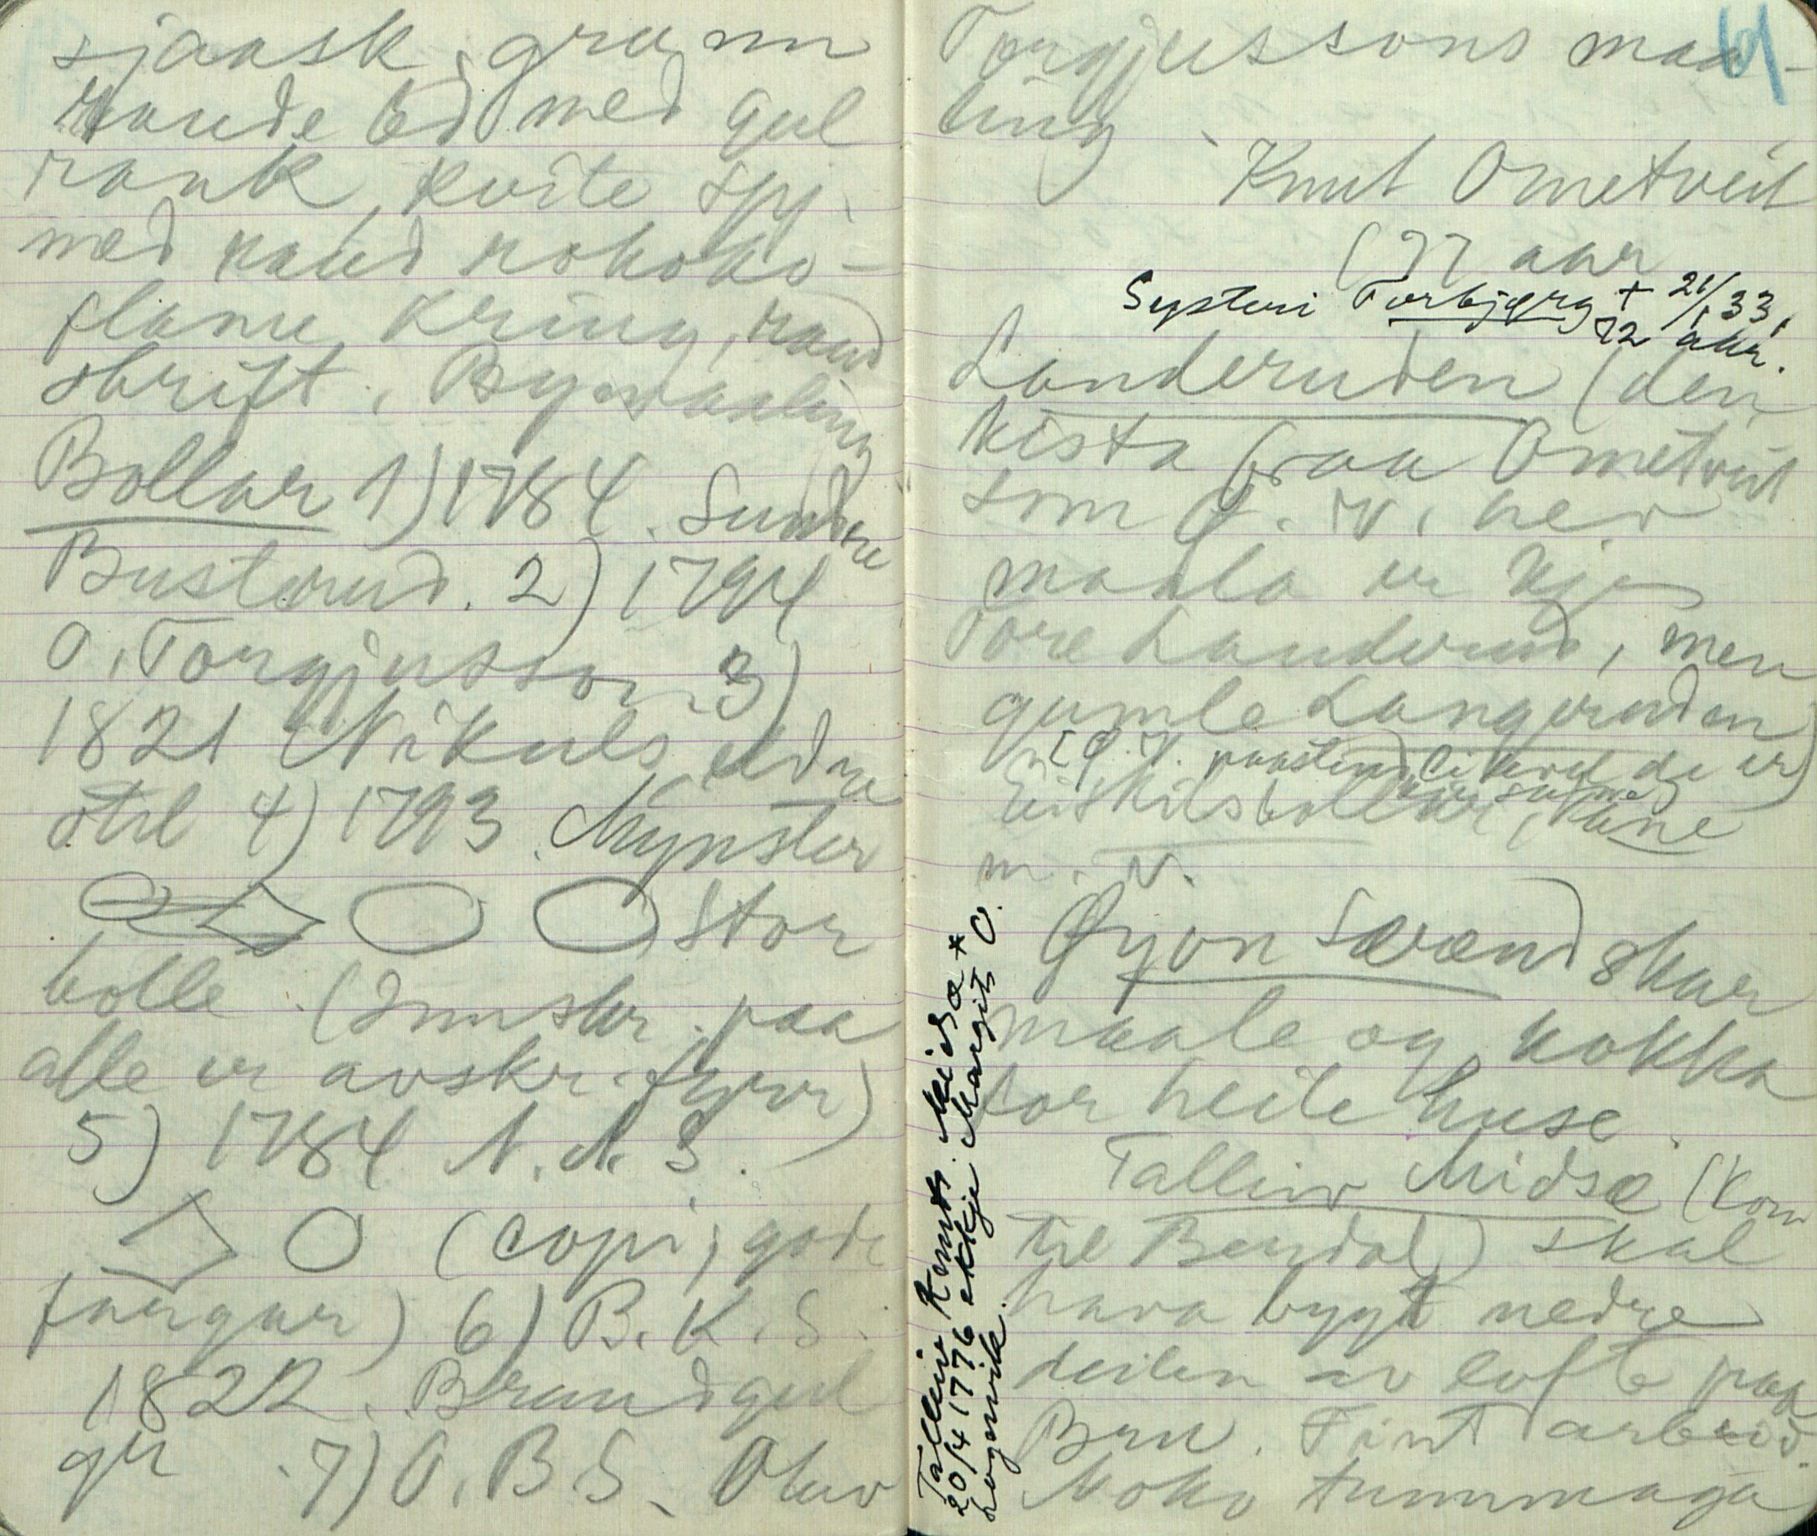 sjaask, grøn
raude bd med gul
rank, kvite spj.
med raud rokoko-
flame kring, raud
skrift. Bymaaling
Bollar 1) 1784. Sundre
Busterud. 2) 1794
O. Torgjusson 3)
1821 Nikuls eldre
stil 4) 1793. Mynster
Stor
bolle. (Innskr. paa
alle er avskr. fyrr)
5) 1784 N. N. S.
(copi, gode
fargar) 6) B. K. S.
1822. Brundgul
gr. 7) O. B. S. Oluv
61
Torgjussons maa-
ling
Knut Ometveit
(77 aar
Systeri Torbjørg + 21/1 33,
72 aar.
Landeruden (den
kista fraa Ometveit
som G. N. her
maala er kje
Tore Landerud, men
gumle Langeruden)
[G. N. paastend likevel de er
Eiskilsbollar, Rune
m. N.
Gjøn Særend skar
maale og rokka
for heile huse.
Talleiv Midsæ (kom
til Berdal) skal
hava bygt nedre
deilen av lofte paa
Bru. Fint arbeid.
Noko tummaga
Talleiv Knuts. Meidsæ *
20/4 1776 ekkje Margit O.
Løgavik.